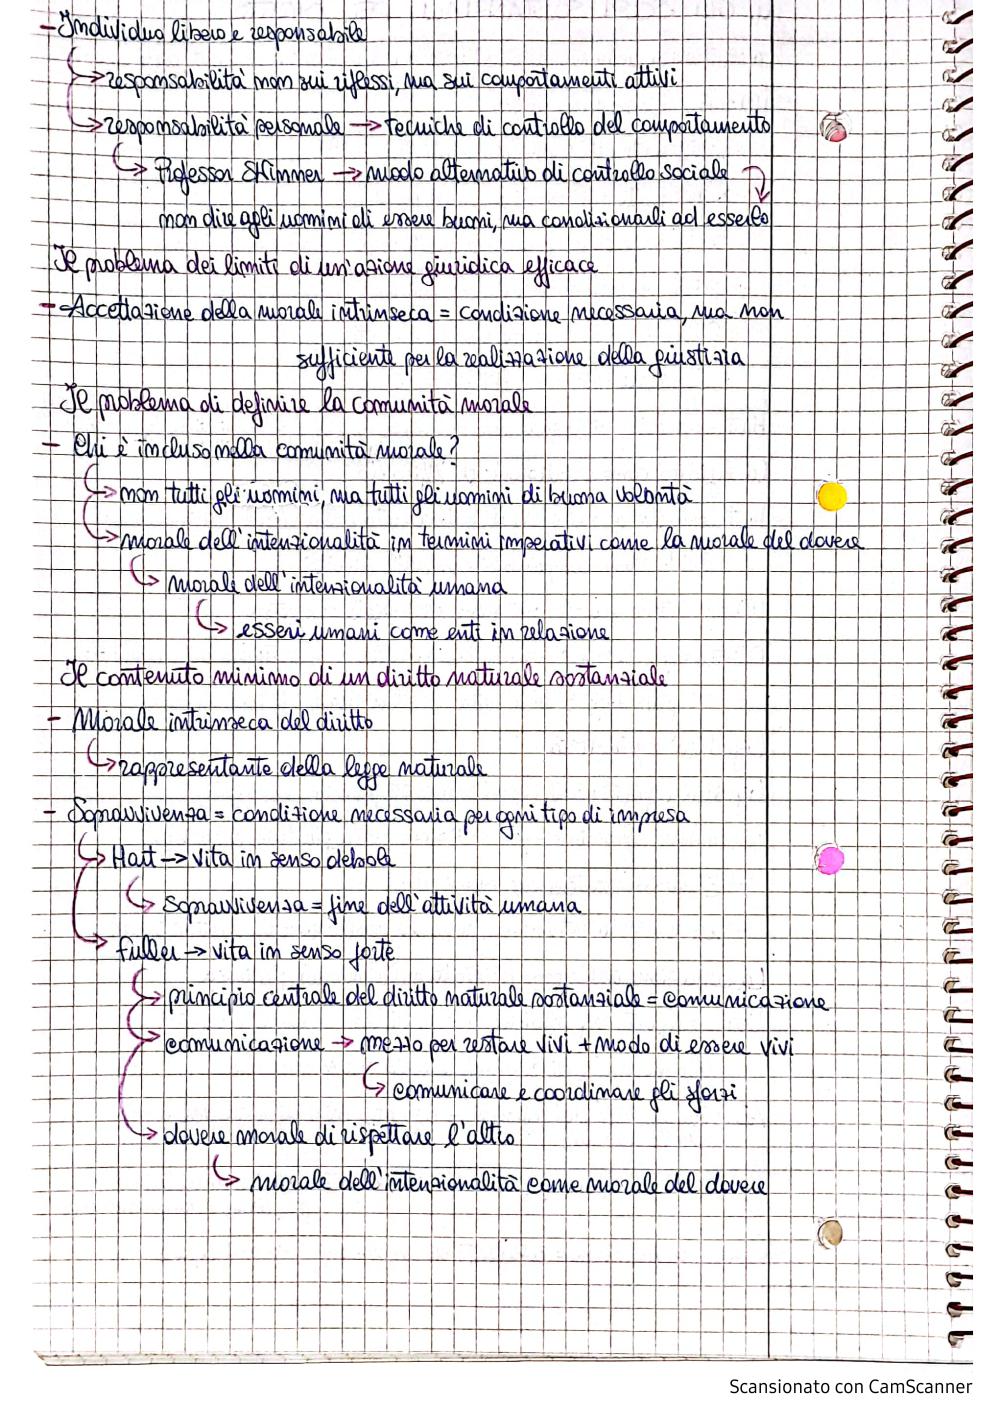 - Individuo libero e responsabile
→ responsabilità non sui riflessi, ma sui comportamenti attivi
→ responsabilità personale → tecniche di controllo del comportamento
→ Professor Skinner → modo alternativo di controllo sociale
non dire agli uomini di essere buoni, ma condizionarli ad esserlo
Il problema dei limiti di un'azione giuridica efficace
- Accettazione della morale intrinseca = condizione necessaria, ma non
sufficiente per la realizzazione della giustizia
Il problema di definire la comunità morale
- Chi è incluso nella comunità morale?
→ non tutti gli uomini, ma tutti gli uomini di buona volontà
→ morale dell'intenzionalità in termini imperativi come la morale del dovere
→ morale dell'intenzionalità umana
→ esseri umani come enti in relazione
Il contenuto minimo di un diritto naturale sostanziale
- Morale intrinseca del diritto
→ rappresentante della legge naturale
- Sopravvivenza = condizione necessaria per ogni tipo di impresa
→ Hart → vita in senso debole
→ Sopravvivenza = fine dell'attività umana
→ Fuller → vita in senso forte
→ principio centrale del diritto naturale sostanziale = comunicazione
→ comunicazione → mezzo per restare vivi + modo di essere vivi
→ comunicare e coordinare gli sforzi
→ dovere morale di rispettare l'altro
→ morale dell'intenzionalità come morale del dovere
Scansionato con CamScanner